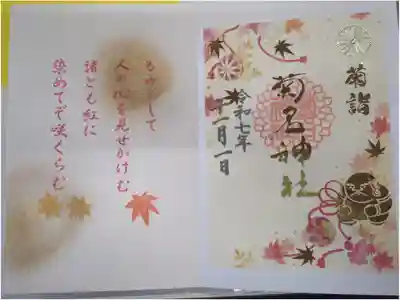 菊詣
菊名神社
令和七年
十一月一日
して
人の
を見せかけむ
とも紅に
染めてぞ咲くらむ